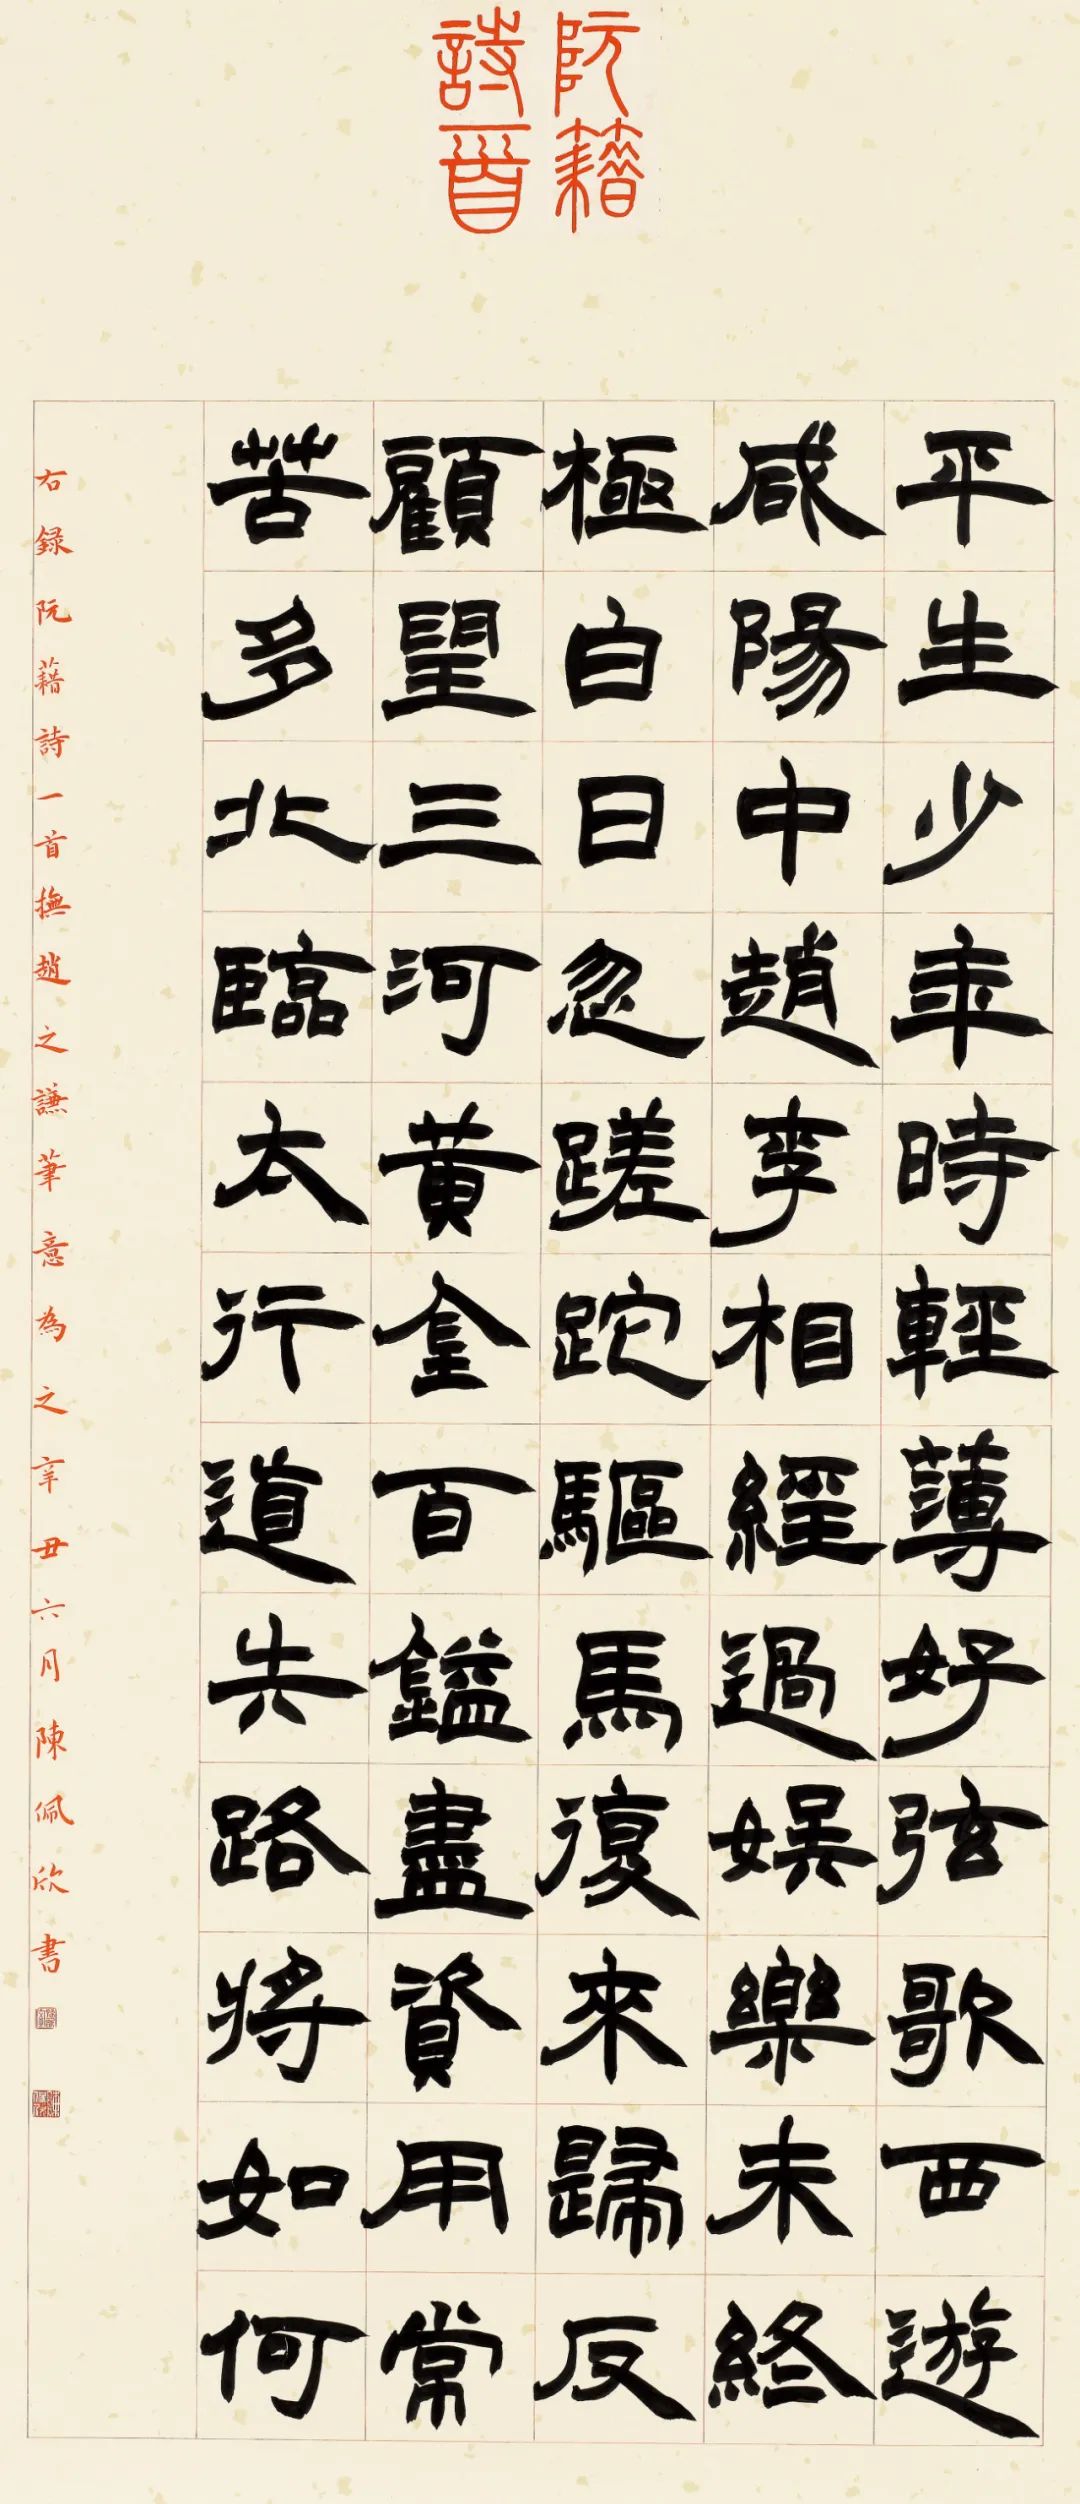 阮藉
詩一首
平生少年時輕薄好弦歌西遊
咸陽中趙李相經過娛樂未終
極白日忽蹉跎驅馬復來歸反
顧望三河黃金百鎰盡資用常
苦多北臨太行道失路將如何
右錄阮藉詩一首撫趙之謙筆意為之辛丑六月陳佩欣書